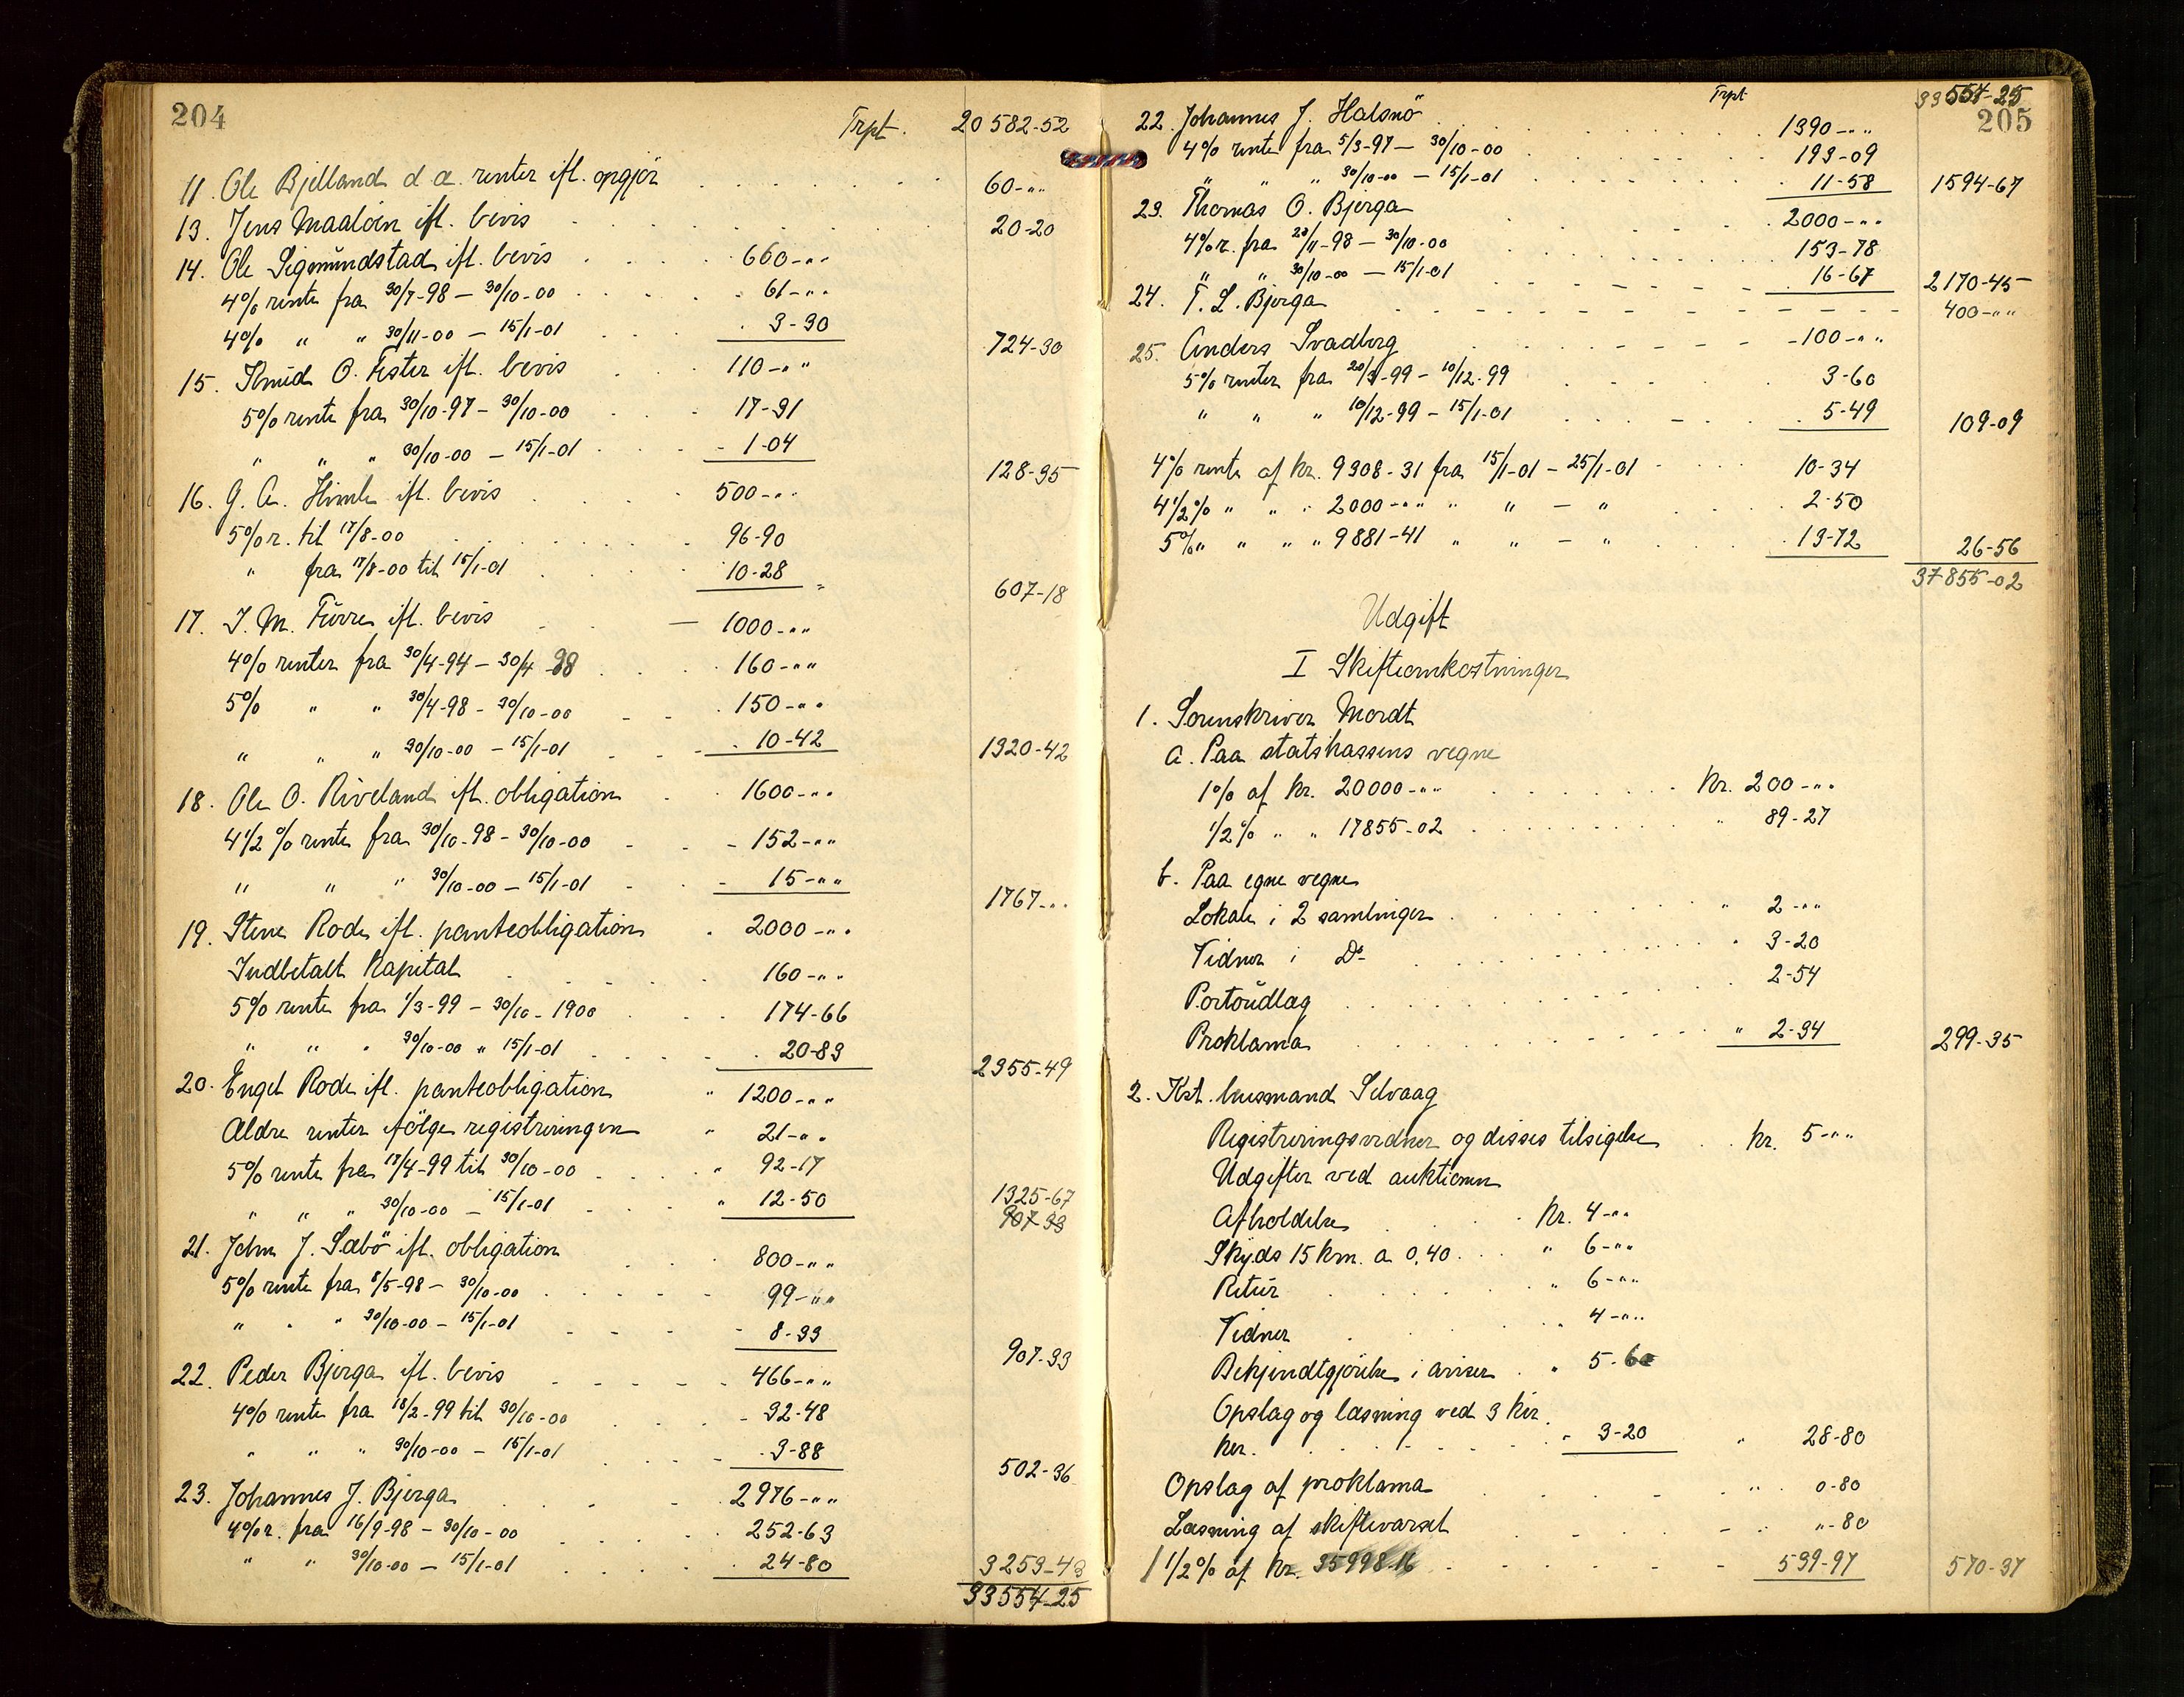 204
Trpt. 20582-52
11. Ole Bjelland d a. renter ifl. opgjör 60-"
13. Jens Maaloën ifl. bevis 20-20
14. Ole Sigmundstad ifl. bevis 660-"
4% rente fra 30/7-98 – 30/10-00 61-"
4% " " 30/11-00 – 15/1-01 3-30 724-30
15. Knud O. Fister ifl. bevis 110-"
5% rente fra 30/10-97 – 30/10-00 17-91
" " " 30/10-00 – 15/1-01 1-04 128-95
16. G. A. Himle ifl. bevis 500-"
5% r. til 17/8-00 96-90
" fra 17/8-00 til 15/1-01 10-28 607-18
17. J. M. Furre ifl. bevis 1000-"
4% renter fra 30/4-94 – 30/4-98 160-"
5% " " 30/4-98 – 30/10-00 150-"
" " " 30/10-00 – 15/1-01 10-42 1320-42
18. Ole O. Riveland ifl. obligation 1600-"
4 1/2 % rente fra 30/10-98 – 30/10-00 152-"
" " " 30/10-00 – 15/1-01 15-" 1767-"
19. Stene Rode ifl. panteobligation 2000-"
Indbetalt Kapital 160-"
5% rente fra 1/3-99 – 30/10-1900 174-66
" " " 30/10-00 " 15/1-01 20-83 2355-49
20. Engel Rode ifl. panteobligation " 1200-"
Ældre renter ifölge registreringen " 21-"
5% rente fra 17/4-99 til 30/10-00 " 92-17
" " " 30/10-00 – 15/1-01 " 12-50 1325-67
907 33
21. John J. Sæbö ifl. obligation 800-"
5% rente fra 8/5-98 – 30/10-00 99-"
" " " 30/10-00 – 15/1-01 8-33 907-33
22. Peder Bjerga ifl. bevis 466-"
4% rente fra 18/2-99 til 30/10-00 32-48
" " " 30/10-00 – 15/1-01 3-88 502-36
23. Johannes J. Bjerga 2976-"
4% r. fra 16/9-98 – 30/10-00 252-63
" " 30/10-00 – 15/1-01 24-80 3253-43
33554-25
Trpt 33554-25
205
22. Johannes J. Halsnö 1390-"
4% rente fra 5/3-97 – 30/10-00 193-09
" " " 30/10-00 – 15/1-01 11-58 1594-67
23. Thomas O. Bjerga 2000-"
4% r. fra 28/11-98 – 30/10-00 153-78
" " 30/10-00 – 15/1-01 16-67 2170-45
24. T. L. Bjerga 400-"
25. Anders Svadberg 100-"
5% renter fra 20/3-99 – 10/12-99 3-60
" " " 10/12-99 – 15/1-01 5-49 109-09
4% rente af kr. 9308-31 fra 15/1-01 – 25/1-01 10-34
4 1/2 % " " " 2000-" " " – " 2-50
5% " " " " 9881-41 " " – " 13-72 26-56
37855-02
Udgift
I Skifteomkostninger
1. Sorenskriver Mordt
a. Paa statskassens vegne
1% af kr. 20000-" kr. 200-"
1/2 % " " 17855-02 " 89-27
b. Paa egne vegne
Lokale i 2 samlinger " 2-"
Vidner i Do " 3-20
Portoudlæg 2-54
Proklama " 2-34 299-35
2. Kst. lensmand Selvaag
Registreringsvidner og disses tilsigelse kr. 5-"
Udgifter ved auktionen
Afholdelse kr. 4-"
Skyds 15 km. a 0,40 " 6-"
Retur " 6-"
Vidner " 4-"
Bekjendtgjörelse i aviser " 5-60
Opslag og læsning ved 3 kir
ker. " 3-20 " 28-80
Opslag af proklama " 0-80
Læsning af skiftevarsel " "-80
1 1/2 % af kr. 35998-16 539-97 570-37